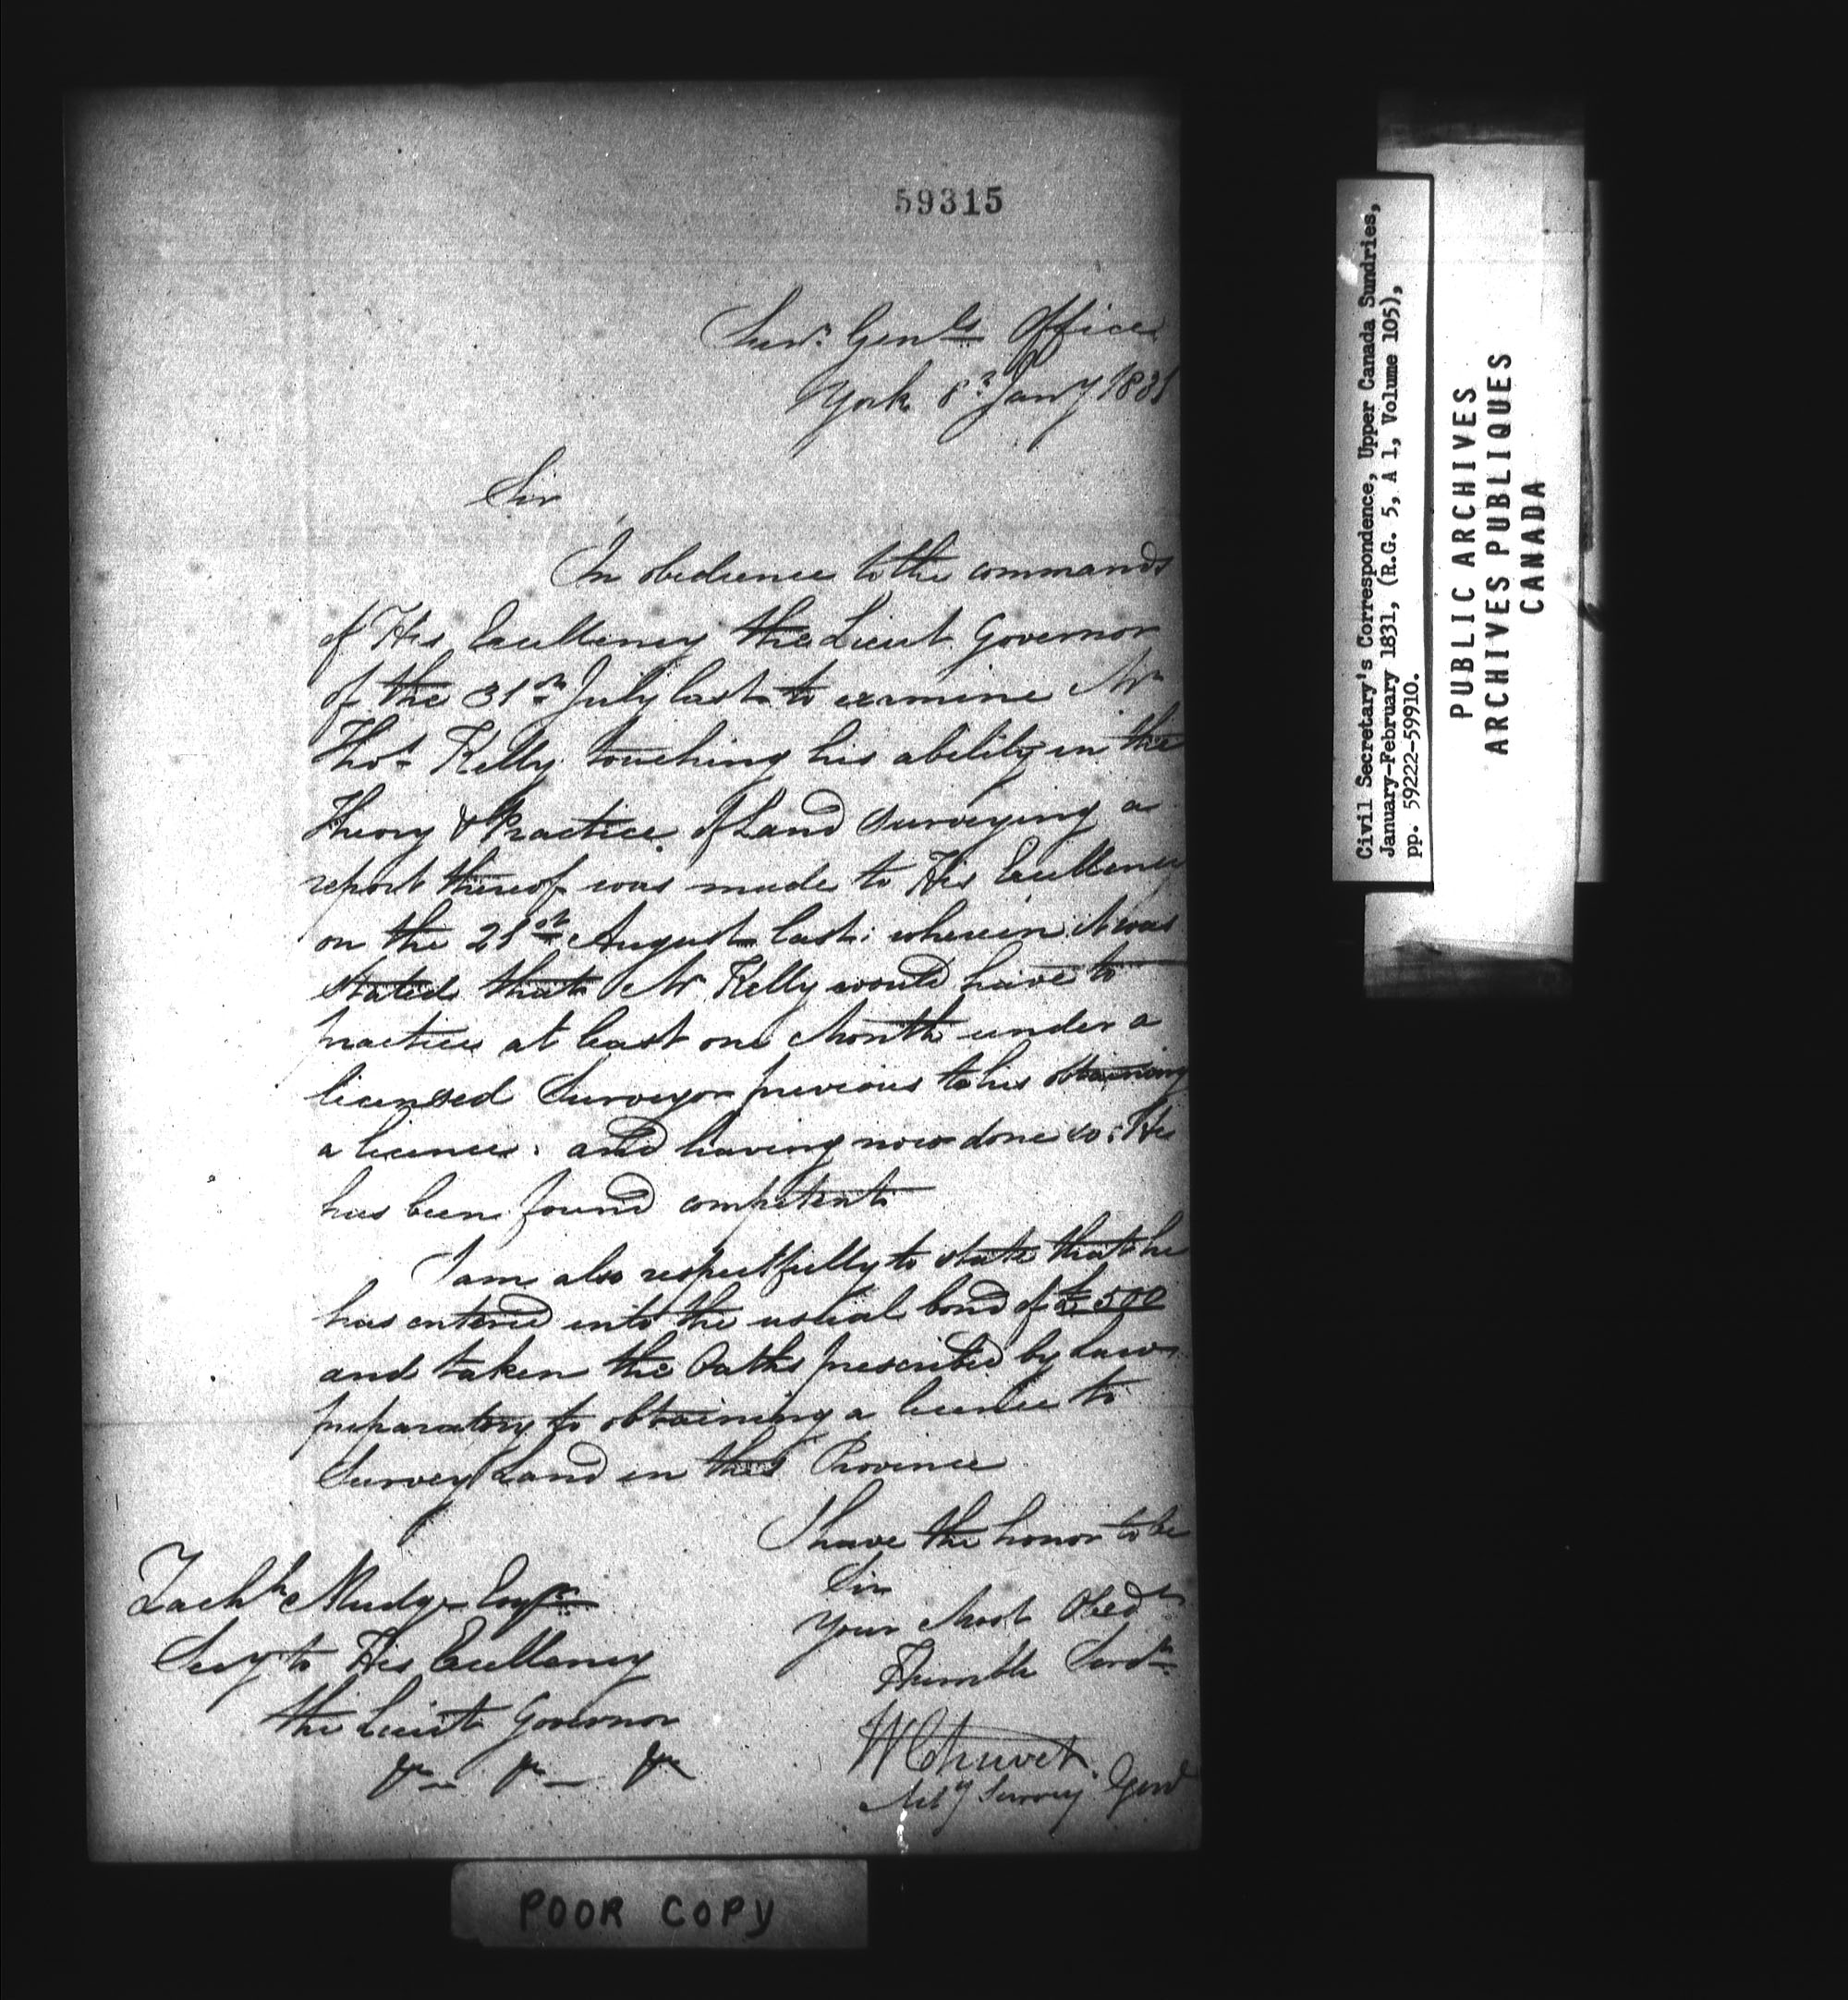 59315
Surv. Genls Office
York 8th Jany 1831
Sir
In obedience to the commands
of His Excellency the Lieut. Governor
of the 31st July last to examine Mr
Thos Kelly touching his ability in the
Theory & Practice of Land Surveying a
report thereof was made to His Excellency
on the 21st August last: wherein it was
stated that Mr Kelly would have to
practice at least one Month under a
licensed Surveyor previous to his obtaining
a licence: and having now done so: He
has been found competent
I am also respectfully to state that he
has entered into the usual bond of £500
and taken the Oaths prescribed by Law
preparatory to obtaining a licence to
Survey Land in this Province
I have the honor to be
Sir
Your Most Obedt
Humble Servt
W Chewett
Actg Survey Genl
Zachh Mudge Esqre
Secy to His Excellency
the Lieut Governor
&c &c &c
POOR COPY
Civil Secretary's Correspondence, Upper Canada Sundries,
January-February 1831, (R.G. 5, A 1, Volume 105),
pp. 59222-59910.
PUBLIC ARCHIVES
ARCHIVES PUBLIQUES
CANADA